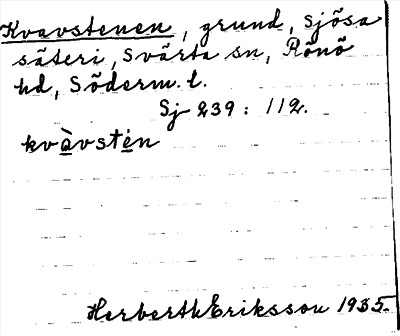 Kvavstenen, grund, Sjösa
säteri, Svärta sn, Rönö
hd, Söderm. l.
Sj 239: 112.
kvàvstén
Herberth Eriksson 1935.